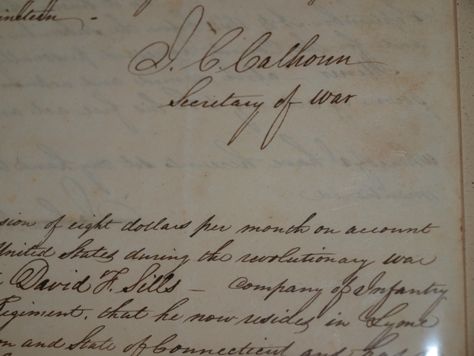 nineteen.
J. C. Calhoun
Secretary of war
sion of eight dollars per month on account
United States during the revolutionary war
David F. Sills — Company of Infantry
Regiment, that he now resides in Lyme
on and State of Connecticut and